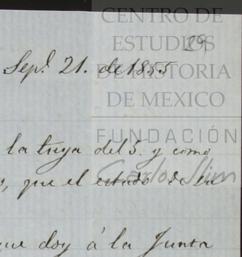 CENTRO DE
ESTUDIOS
29
Sep.^t 21. de 1855
DE HISTORIA
DE MEXICO
FUNDACIÓN
la tuya del 5. y como
Carlos Slim
que el estado de su
que doy á la Junta